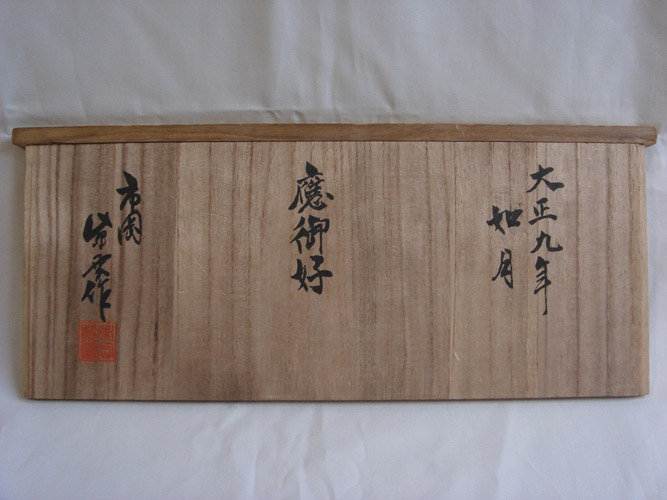 大正九年
如月
應御好
市岡
紫雲作